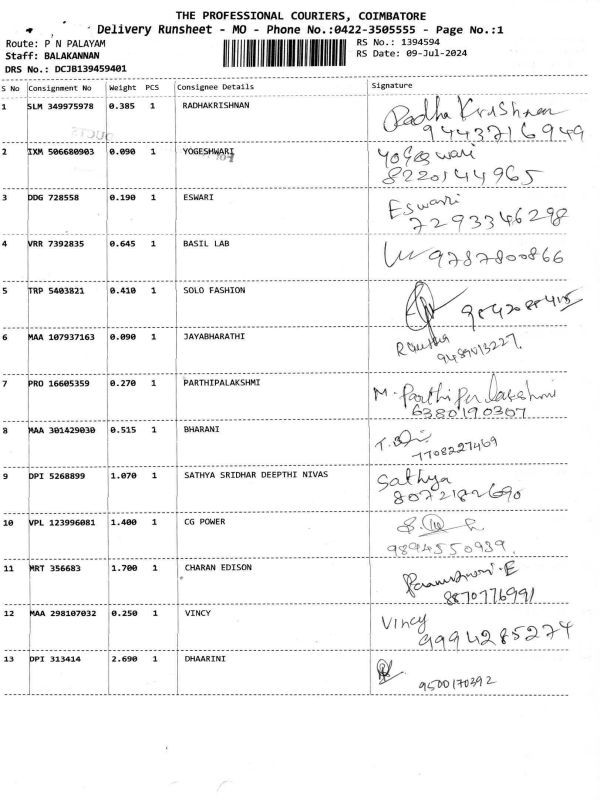 THE PROFESSIONAL COURIERS, COIMBATORE
Delivery Runsheet - MO - Phone No.:0422-3505555 - Page No.:1
Route: P N PALAYAM RS No.: 1394594
Staff: BALAKANNAN RS Date: 09-Jul-2024
DRS No.: DCJB139459401
S No Consignment No Weight PCS Consignee Details Signature
1 SLM 349975978 0.385 1 RADHAKRISHNAN Radha Krishnan
9443716949
2 IXM 506680903 0.090 1 YOGESHWARI Yogeswari
8220144965
3 DDG 728558 0.190 1 ESWARI Eswari
7293346298
4 VRR 7392835 0.645 1 BASIL LAB 9787800866
5 TRP 5403821 0.410 1 SOLO FASHION
6 MAA 107937163 0.090 1 JAYABHARATHI
7 PRO 16605359 0.270 1 PARTHIPALAKSHMI
6380190307
8 MAA 301429030 0.515 1 BHARANI
7708227469
9 DPI 5268899 1.070 1 SATHYA SRIDHAR DEEPTHI NIVAS Sathya
8072182690
10 VPL 123996081 1.400 1 CG POWER
9894550939.
11 MRT 356683 1.700 1 CHARAN EDISON
8870776991
12 MAA 298107032 0.250 1 VINCY Vincy
9994285274
13 DPI 313414 2.690 1 DHAARINI
9500170392